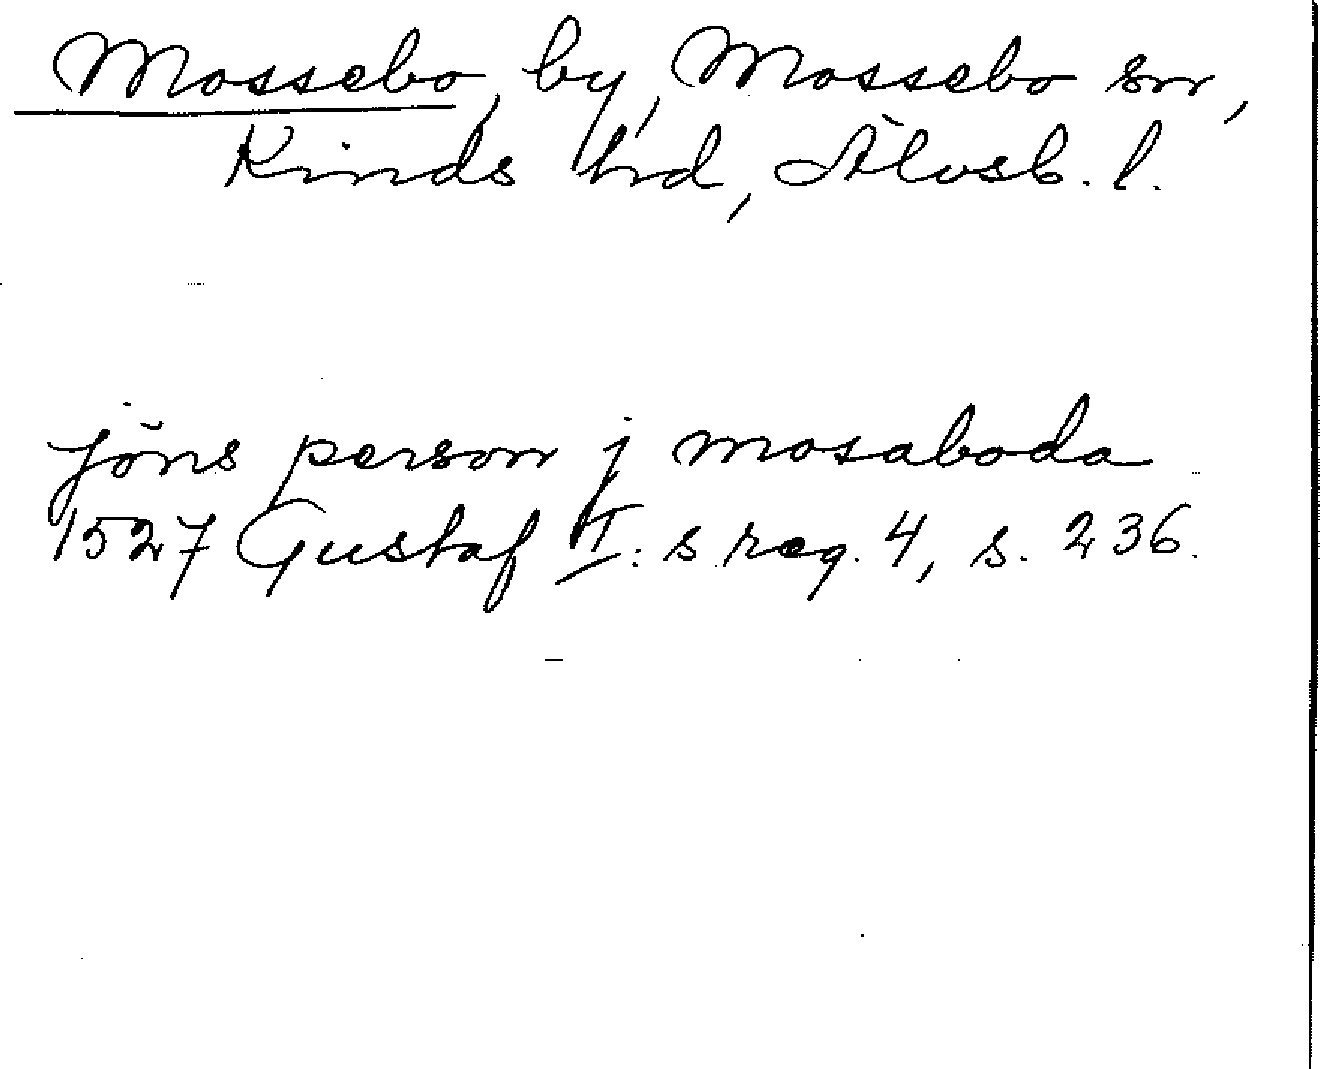 Mossebo, by, Mossebo sn,
Kinds hd, Älvsb. l.
jöns person j mosaboda
1527 Gustaf I: s reg. 4, s. 236.